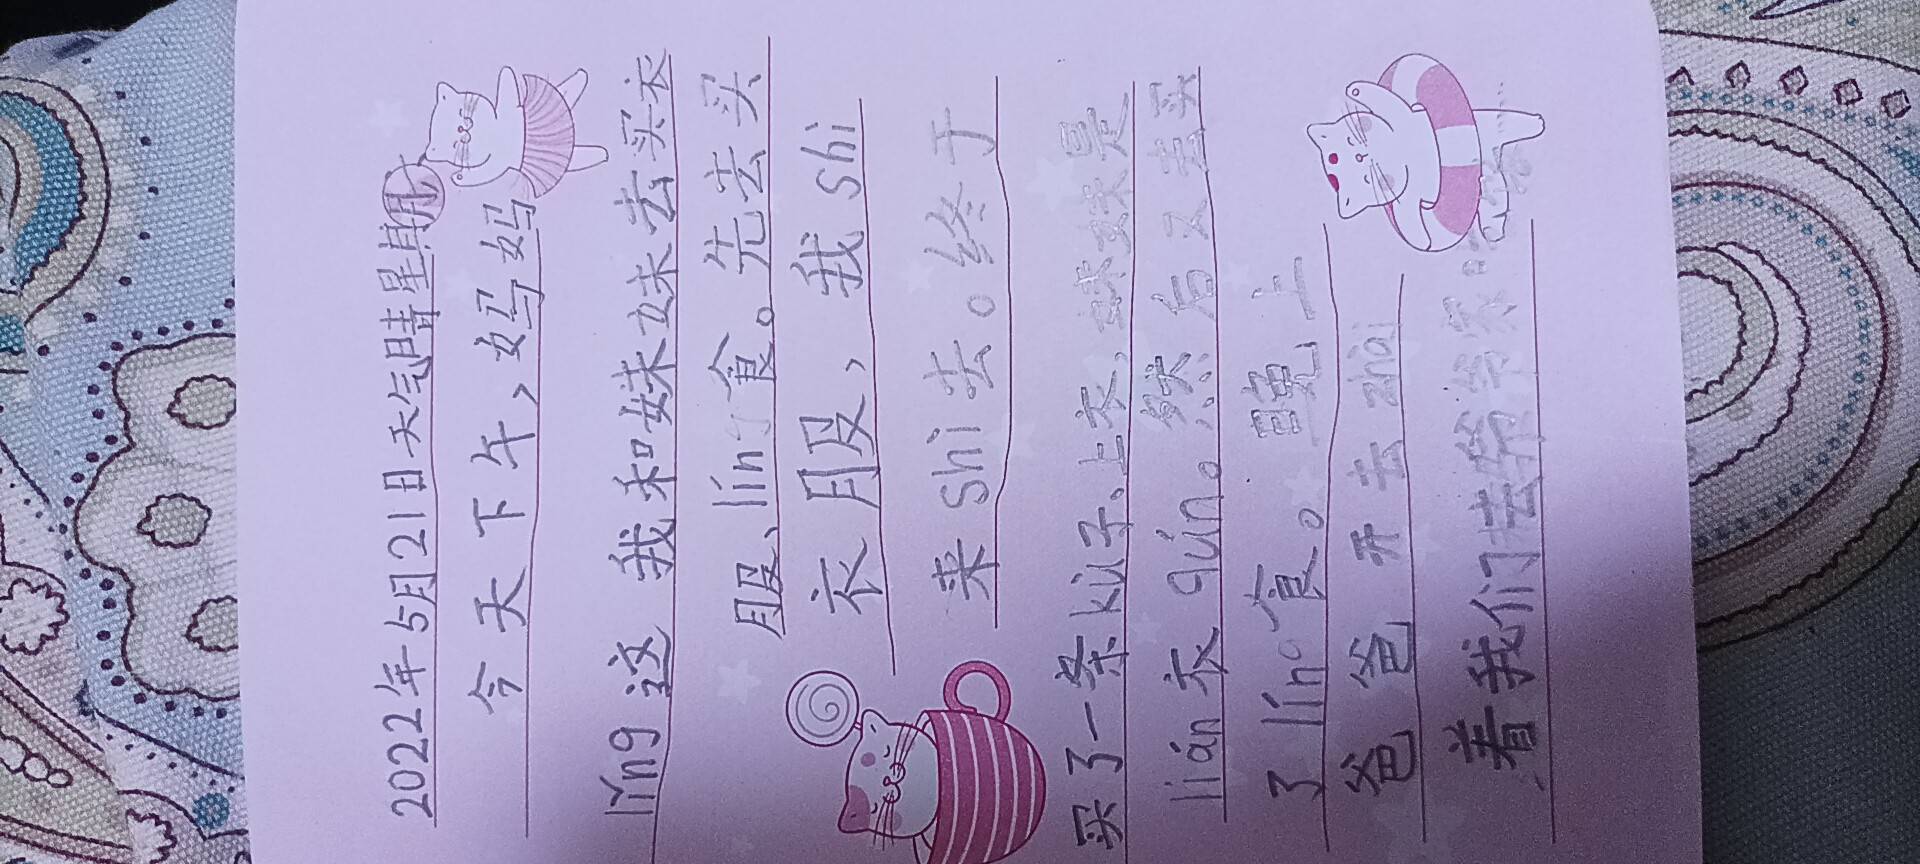 2022年5月21日天气晴星期
今天下午，妈妈
lǐng这我和妹妹去买衣
服、líng食。先去买
衣服，我shi
来shi去。终于
买了一条kù子、上衣,妹妹是
lián衣qún。然后又去买
了líng食。晚上
爸爸开去zhài
着我们去爷爷家